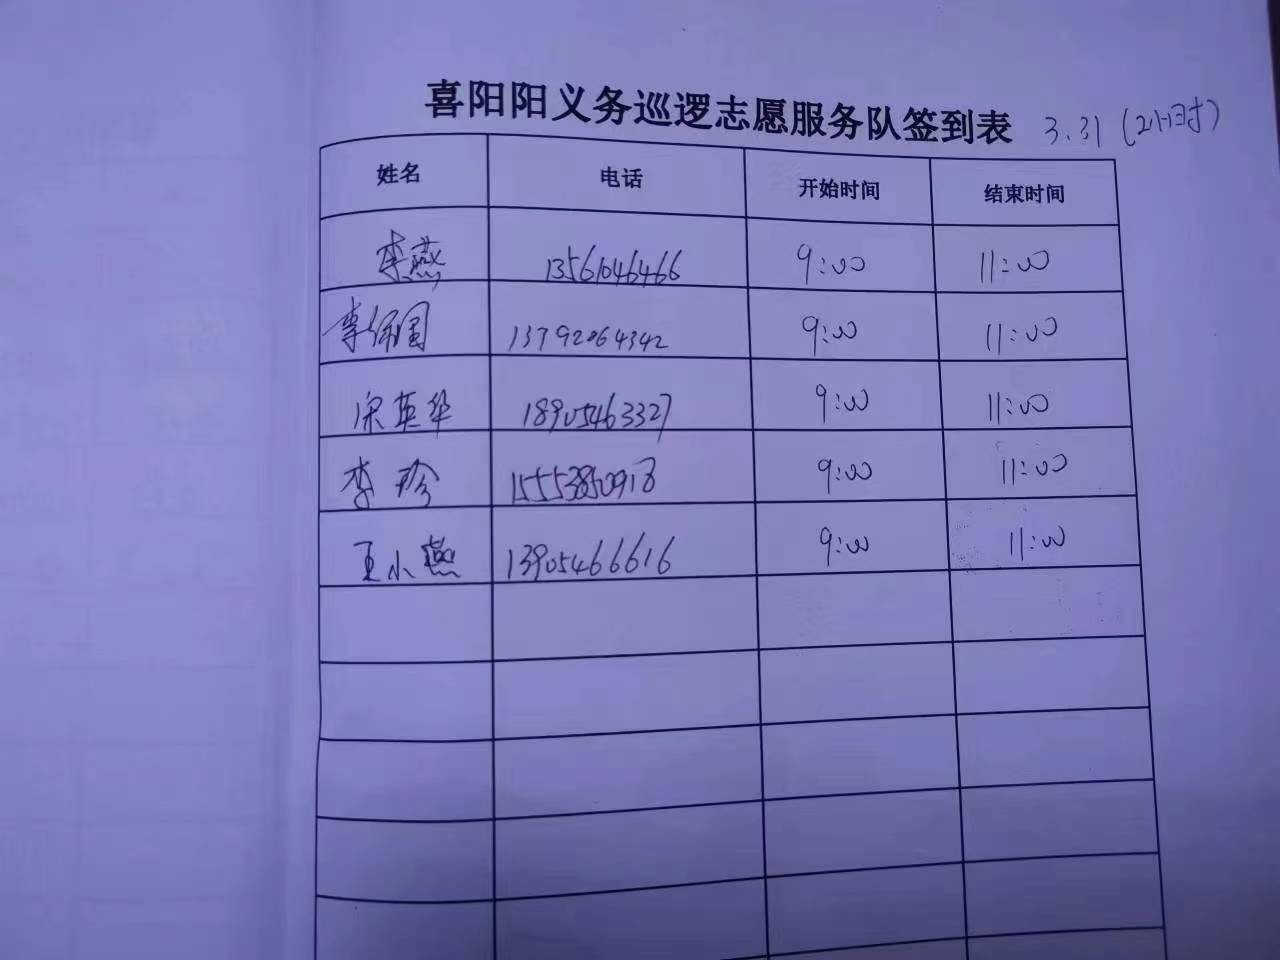 喜阳阳义务巡逻志愿服务队签到表 3.31 (2小时)
姓名 电话 开始时间 结束时间
李燕 13561046466 9:00 11:00
李保国 13792064342 9:00 11:00
宋英华 18905463327 9:00 11:00
李珍 15553850918 9:00 11:00
王小燕 13905466616 9:00 11:00